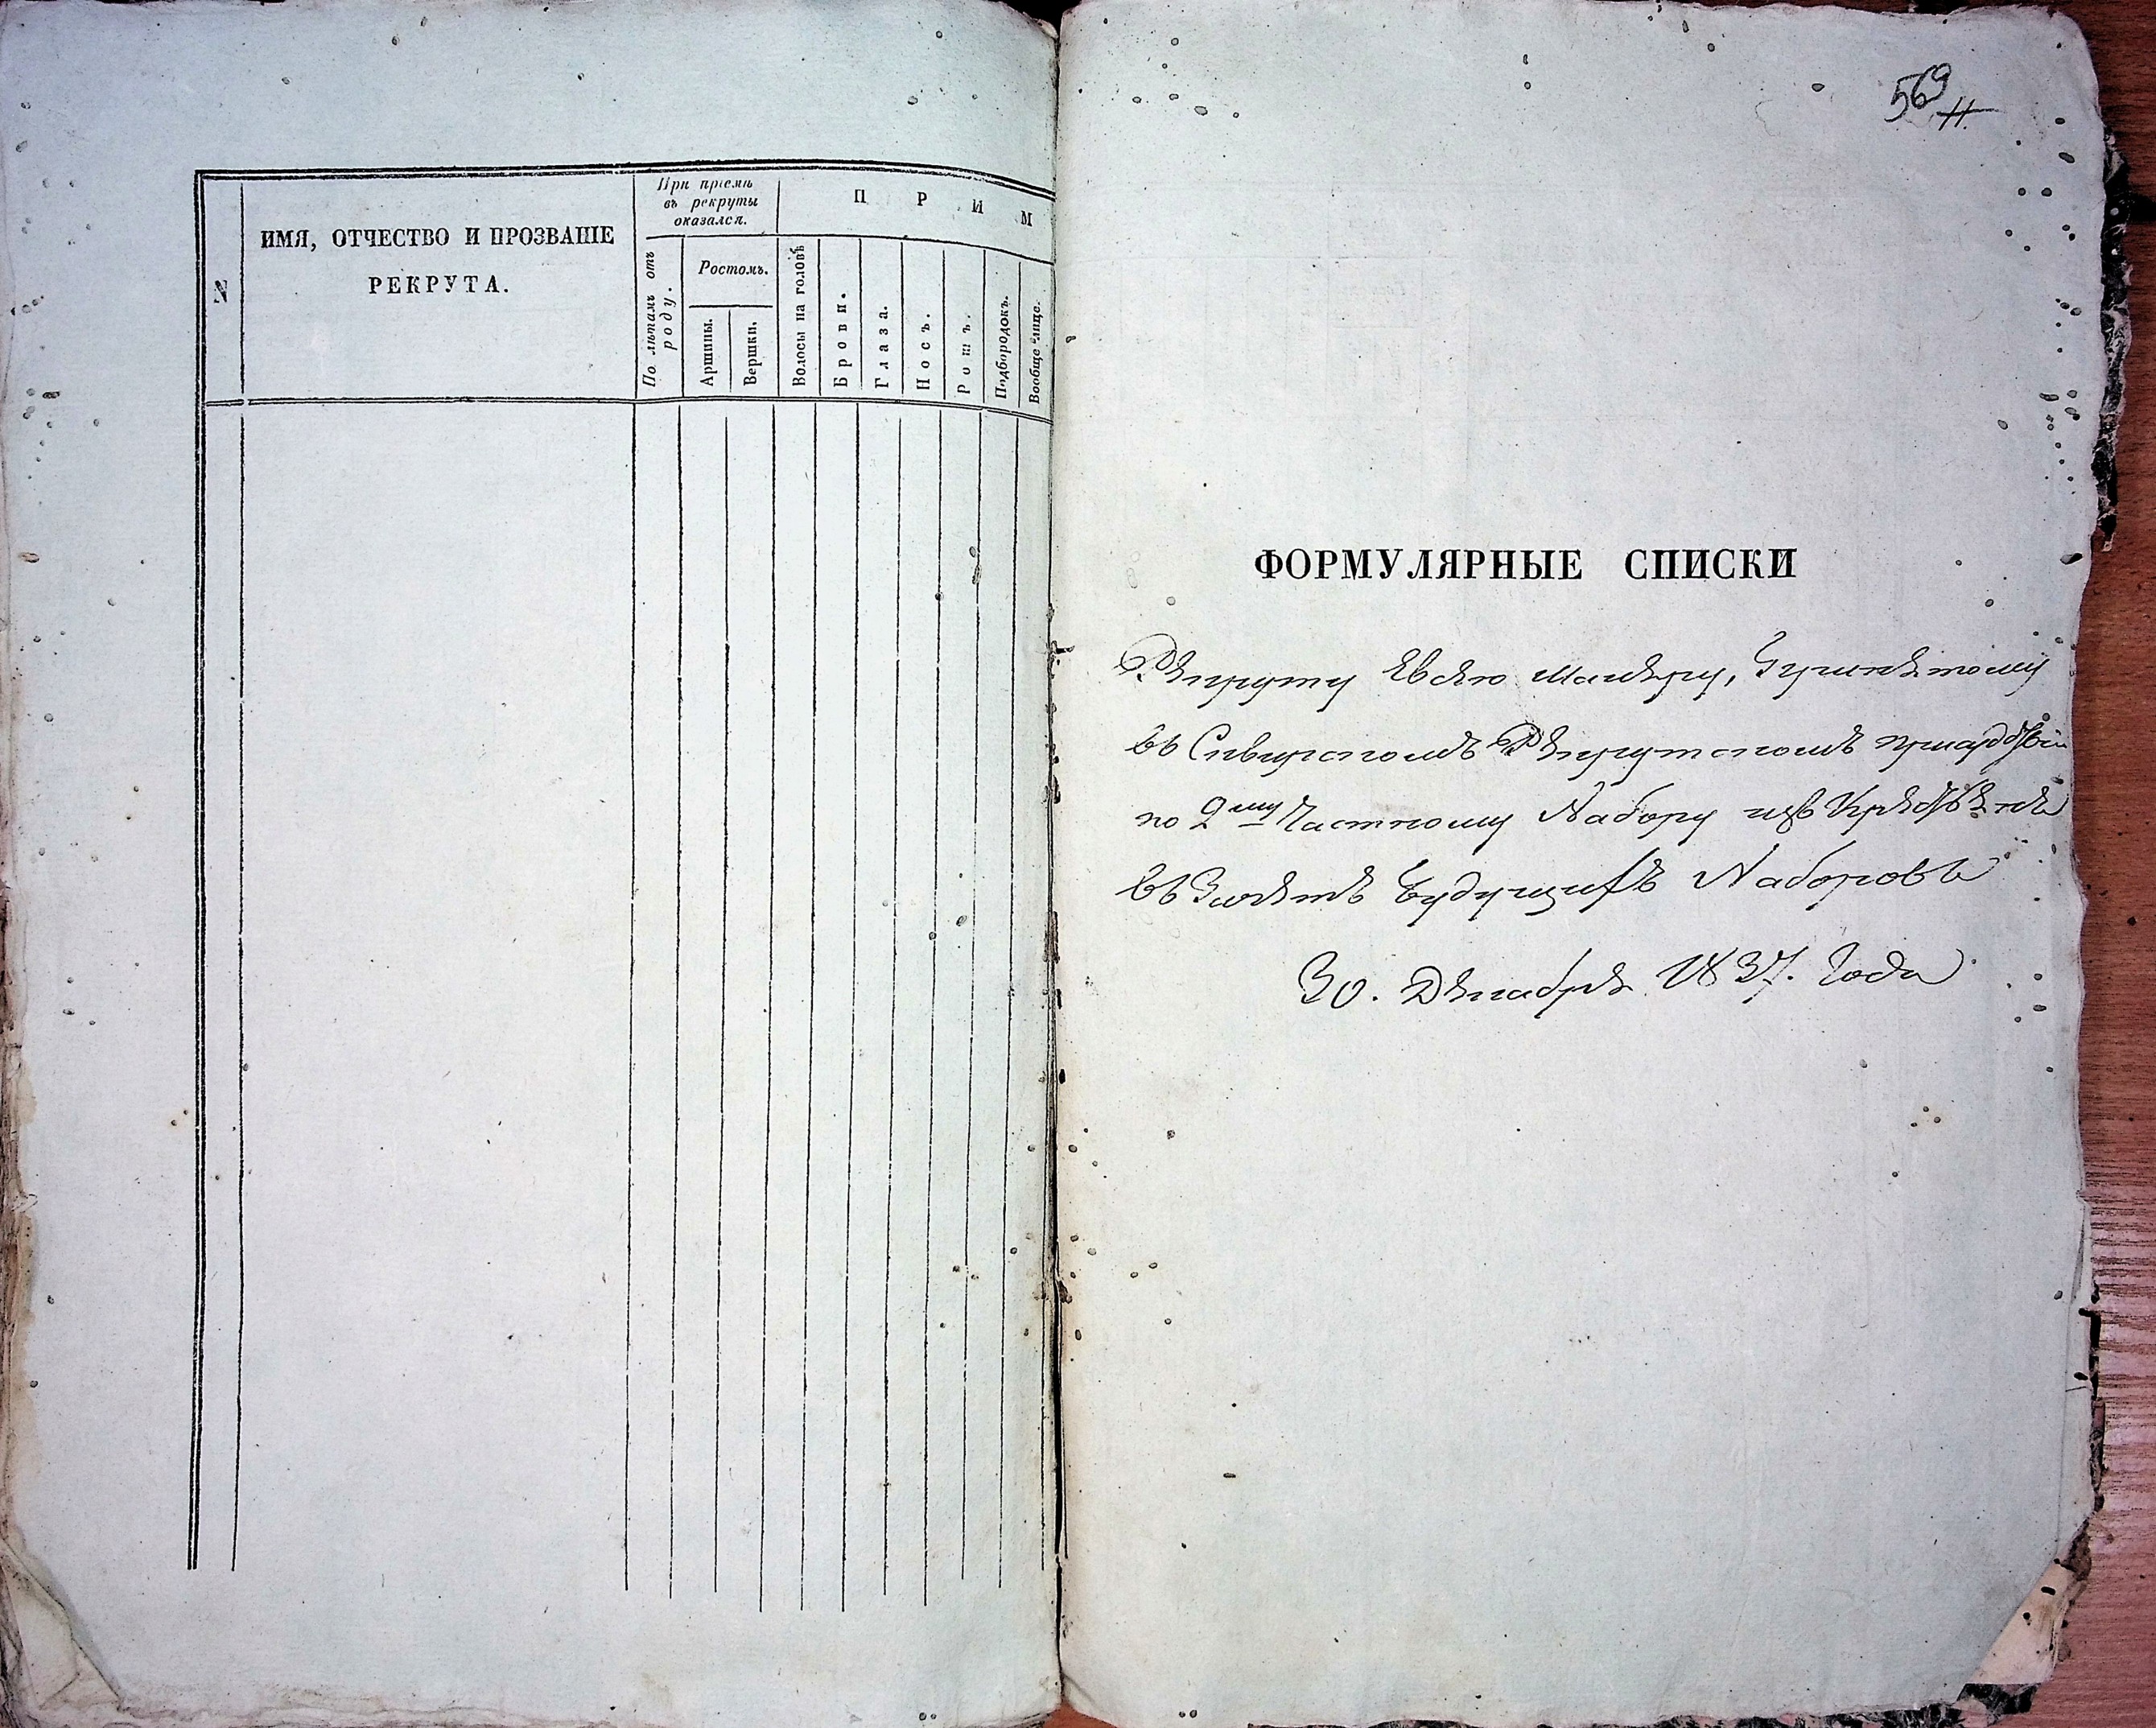 N
ИМЯ, ОТЧЕСТВО И ПРОЗВАНІЕ
РЕКРУТА.
При пріемѣ
въ рекруты
оказался.
По лѣтамъ отъ
роду.
Ростомъ.
Аршины.
Вершки.
П Р И М
Волосы на головѣ
Брови.
Глаза.
Носъ.
Ротъ.
Подбородокъ.
Вообще лице.
569
ФОРМУЛЯРНЫЕ СПИСКИ
Рекруту Евсею
въ Рекрутскомъ
по 2му Частному Набору изъ
въ Зачетъ будущихъ Наборовъ
30. Декабря 1837. Года